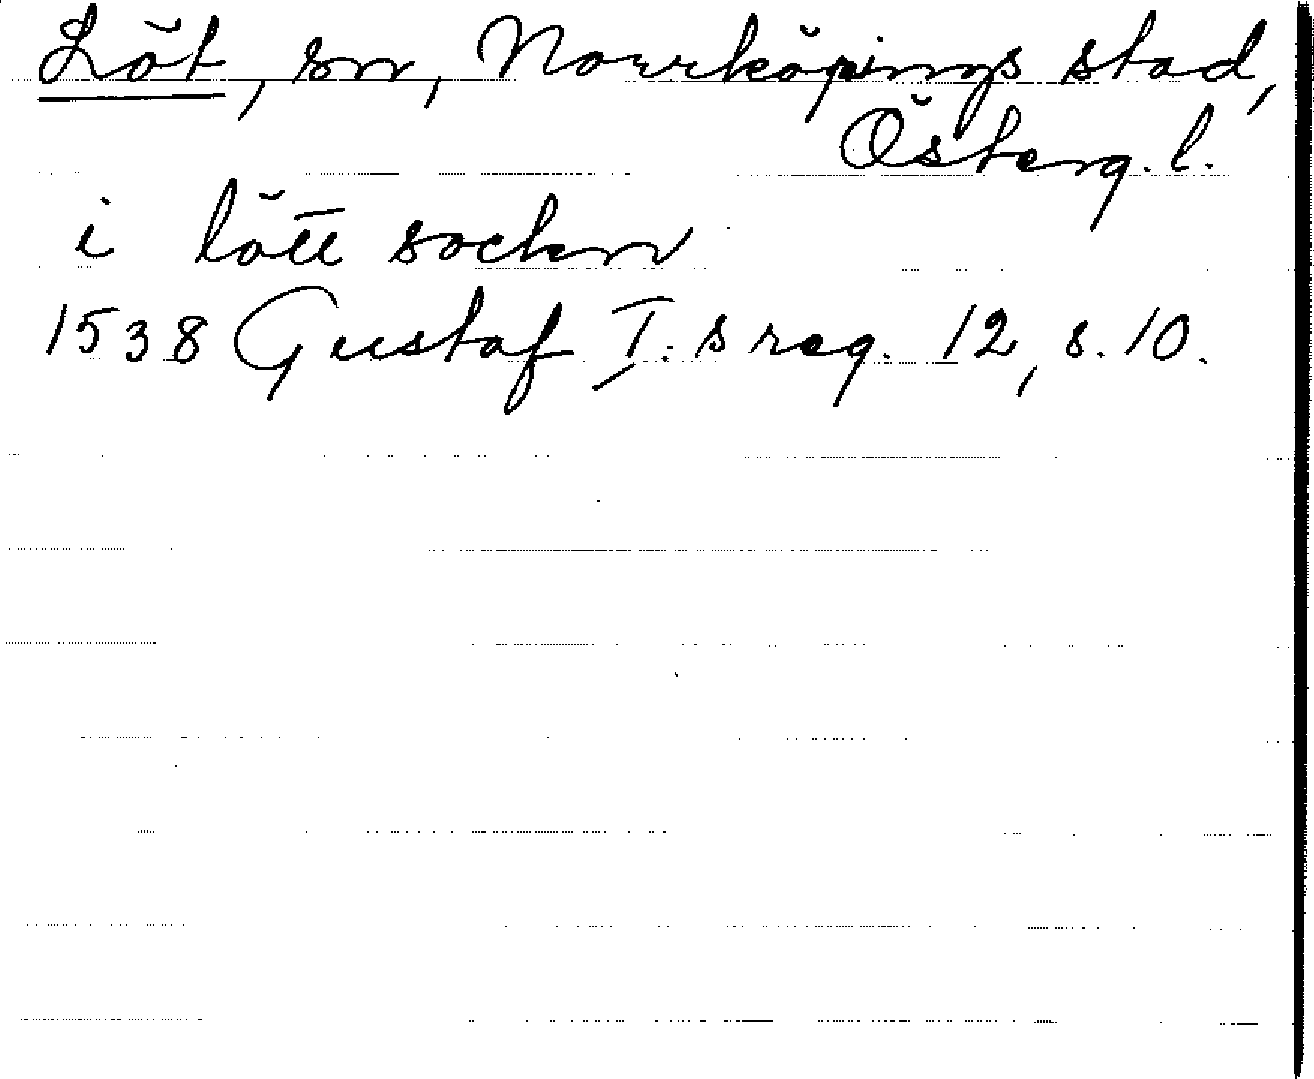 Löt, sn, Norrköpings stad,
Österg. l.
i lött socken
1538 Gustaf I:s reg. 12, s. 10.